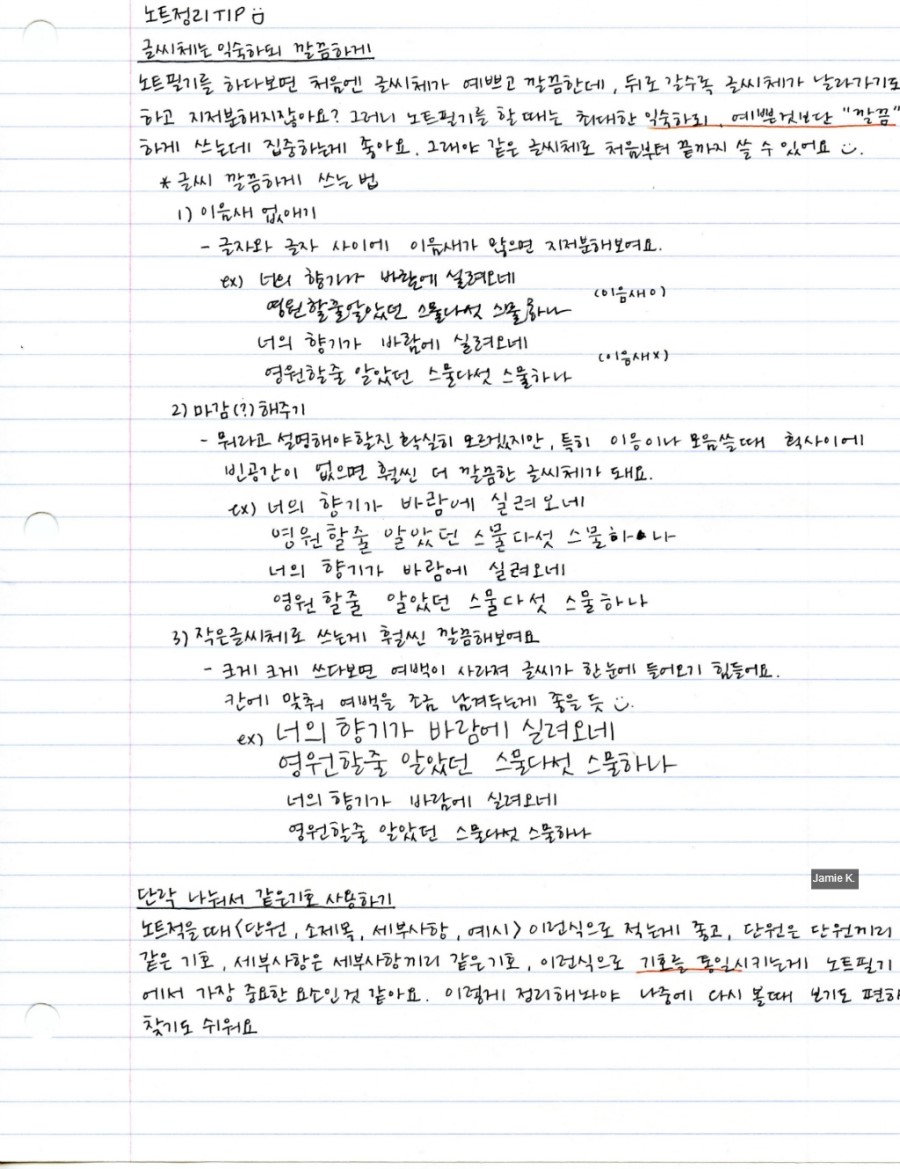 노트정리 TIP
글씨체는 익숙하되 깔끔하게
노트필기를 하다보면 처음엔 글씨체가 예쁘고 깔끔한데, 뒤로 갈수록 글씨체가 날라가기도
하고 지저분해지잖아요? 그러니 노트필기를 할 때는 최대한 익숙하되, 예쁜것보단 "깔끔"
하게 쓰는데 집중하는게 좋아요. 그래야 같은 글씨체로 처음부터 끝까지 쓸 수 있어요 :).
* 글씨 깔끔하게 쓰는 법
1) 이음새 없애기
- 글자와 글자 사이에 이음새가 많으면 지저분해보여요.
ex) 너의 향기가 바람에 실려오네
영원할줄알았던 스물다섯 스물하나 (이음새 O)
너의 향기가 바람에 실려오네
영원할줄 알았던 스물다섯 스물하나 (이음새 X)
2) 마감(?) 해주기
- 뭐라고 설명해야할진 확실히 모르겠지만, 특히 이응이나 모음쓸때 획사이에
빈공간이 없으면 훨씬 더 깔끔한 글씨체가 돼요.
ex) 너의 향기가 바람에 실려오네
영원할줄 알았던 스물다섯 스물하나
너의 향기가 바람에 실려오네
영원할줄 알았던 스물다섯 스물하나
3) 작은글씨체로 쓰는게 훨씬 깔끔해보여요
- 크게 크게 쓰다보면 여백이 사라져 글씨가 한눈에 들어오기 힘들어요.
칸에 맞춰 여백을 조금 남겨두는게 좋을 듯 :).
ex) 너의 향기가 바람에 실려오네
영원할줄 알았던 스물다섯 스물하나
너의 향기가 바람에 실려오네
영원할줄 알았던 스물다섯 스물하나
Jamie K.
단락 나눠서 같은기호 사용하기
노트적을때 <단원, 소제목, 세부사항, 예시> 이런식으로 적는게 좋고, 단원은 단원끼리
같은 기호, 세부사항은 세부사항끼리 같은기호, 이런식으로 기호를 통일시키는게 노트필기
에서 가장 중요한 요소인것 같아요. 이렇게 정리해놔야 나중에 다시 볼때 보기도 편하
찾기도 쉬워요